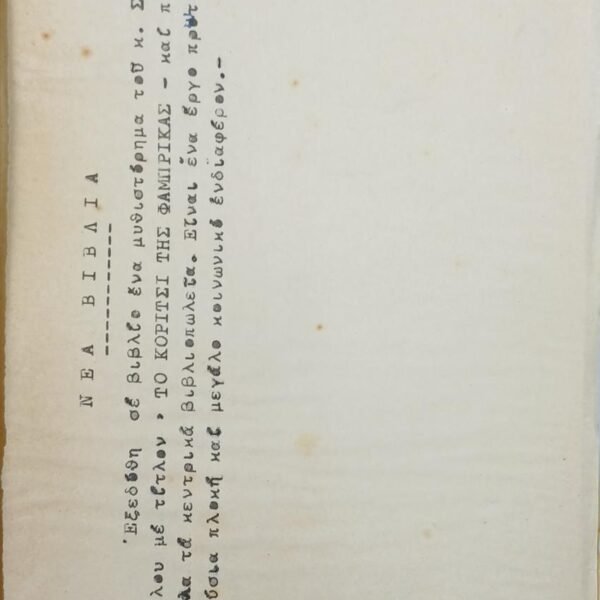 ΝΕΑ ΒΙΒΛΙΑ
-----------
Ἐξεδόθη σέ βιβλίο ἕνα μυθιστόρημα τοῦ κ. Σ
λου μέ τίτλον , ΤΟ ΚΟΡΙΤΣΙ ΤΗΣ ΦΑΜΠΡΙΚΑΣ - καί π
λα τά κεντρικά βιβλιοπωλεῖα. Εἶναι ἕνα ἔργο πρωτ
ύσια πλοκή καί μεγάλο κοινωνικό ἐνδιαφέρον.-